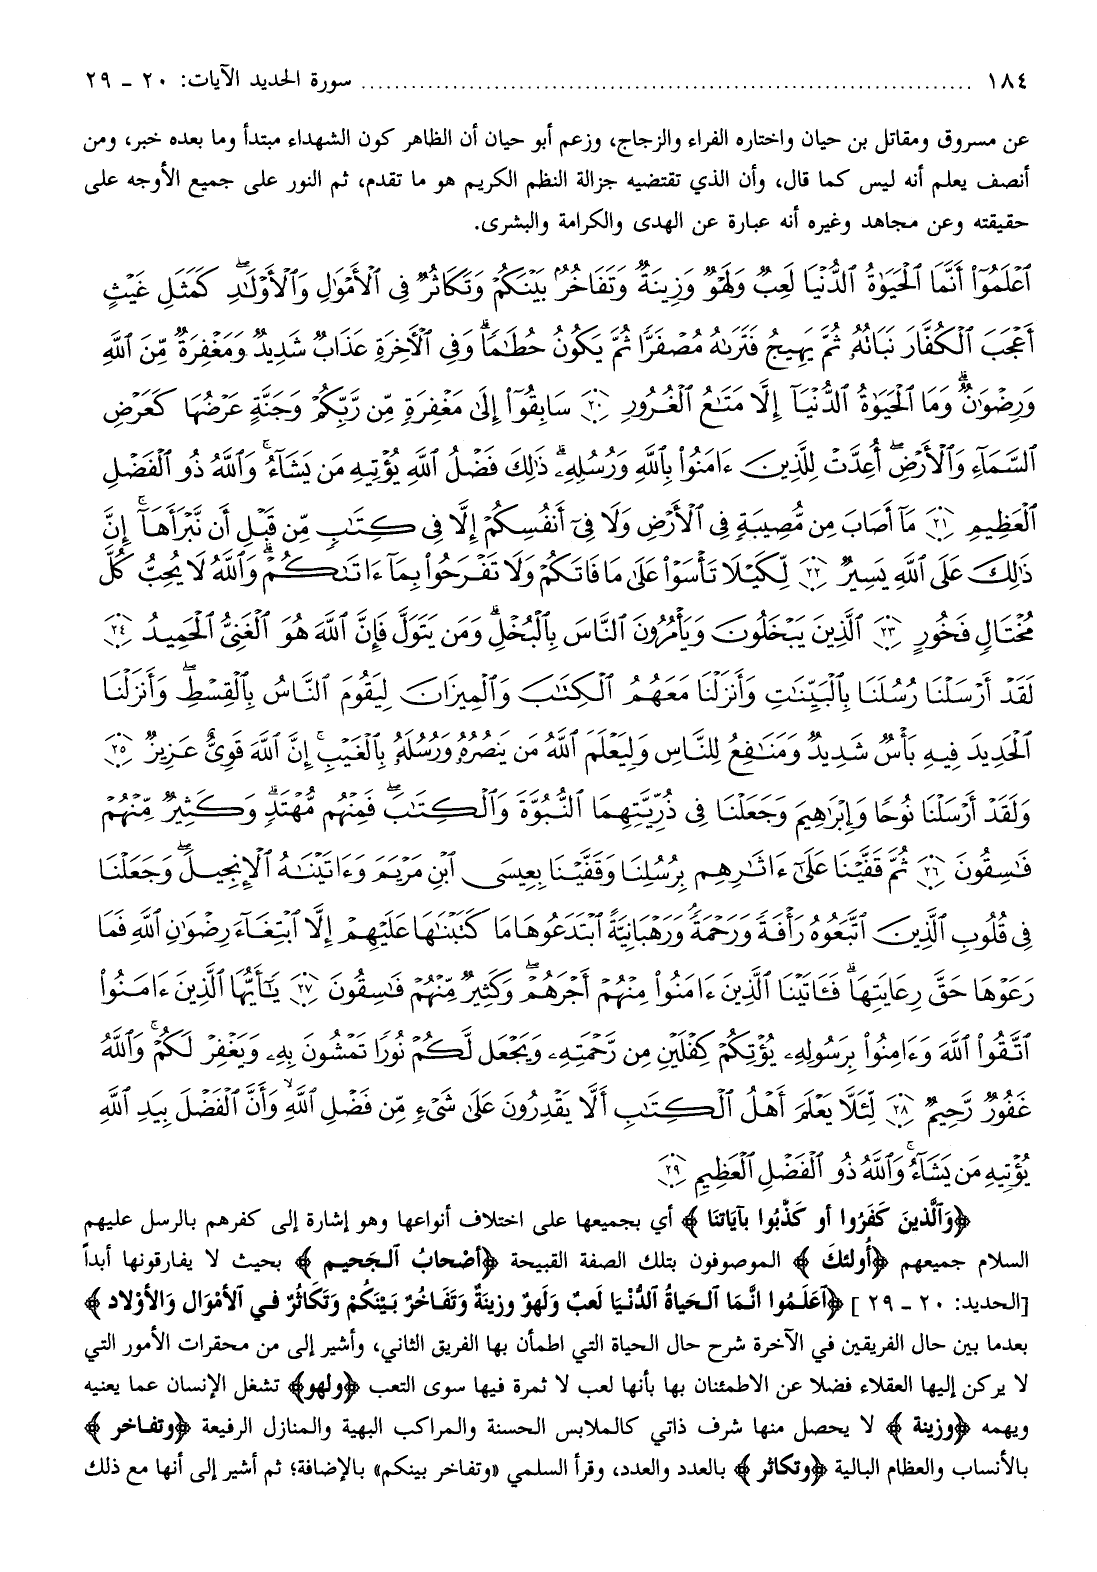 ١٨٤ ........................................................................ سورة الحديد الآيات: ٢٠ ـ ٢٩
عن مسروق ومقاتل بن حيان واختاره الفراء والزجاج، وزعم أبو حيان أن الظاهر كون الشهداء مبتدأ وما بعده خبر، ومن
أنصف يعلم أنه ليس كما قال، وأن الذي تقتضيه جزالة النظم الكريم هو ما تقدم، ثم النور على جميع الأوجه على
حقيقته وعن مجاهد وغيره أنه عبارة عن الهدى والكرامة والبشرى.
ٱعۡلَمُوٓاْ أَنَّمَا ٱلۡحَيَوٰةُ ٱلدُّنۡيَا لَعِبٞ وَلَهۡوٞ وَزِينَةٞ وَتَفَاخُرُۢ بَيۡنَكُمۡ وَتَكَاثُرٞ فِي ٱلۡأَمۡوَٰلِ وَٱلۡأَوۡلَٰدِۖ كَمَثَلِ غَيۡثٍ
أَعۡجَبَ ٱلۡكُفَّارَ نَبَاتُهُۥ ثُمَّ يَهِيجُ فَتَرَىٰهُ مُصۡفَرّٗا ثُمَّ يَكُونُ حُطَٰمٗاۖ وَفِي ٱلۡأٓخِرَةِ عَذَابٞ شَدِيدٞ وَمَغۡفِرَةٞ مِّنَ ٱللَّهِ
وَرِضۡوَٰنٞۚ وَمَا ٱلۡحَيَوٰةُ ٱلدُّنۡيَآ إِلَّا مَتَٰعُ ٱلۡغُرُورِ ٢٠ سَابِقُوٓاْ إِلَىٰ مَغۡفِرَةٖ مِّن رَّبِّكُمۡ وَجَنَّةٍ عَرۡضُهَا كَعَرۡضِ
ٱلسَّمَآءِ وَٱلۡأَرۡضِ أُعِدَّتۡ لِلَّذِينَ ءَامَنُواْ بِٱللَّهِ وَرُسُلِهِۦۚ ذَٰلِكَ فَضۡلُ ٱللَّهِ يُؤۡتِيهِ مَن يَشَآءُۚ وَٱللَّهُ ذُو ٱلۡفَضۡلِ
ٱلۡعَظِيمِ ٢١ مَآ أَصَابَ مِن مُّصِيبَةٖ فِي ٱلۡأَرۡضِ وَلَا فِيٓ أَنفُسِكُمۡ إِلَّا فِي كِتَٰبٖ مِّن قَبۡلِ أَن نَّبۡرَأَهَآۚ إِنَّ
ذَٰلِكَ عَلَى ٱللَّهِ يَسِيرٞ ٢٢ لِّكَيۡلَا تَأۡسَوۡاْ عَلَىٰ مَا فَاتَكُمۡ وَلَا تَفۡرَحُواْ بِمَآ ءَاتَىٰكُمۡۗ وَٱللَّهُ لَا يُحِبُّ كُلَّ
مُخۡتَالٖ فَخُورٍ ٢٣ ٱلَّذِينَ يَبۡخَلُونَ وَيَأۡمُرُونَ ٱلنَّاسَ بِٱلۡبُخۡلِۗ وَمَن يَتَوَلَّ فَإِنَّ ٱللَّهَ هُوَ ٱلۡغَنِيُّ ٱلۡحَمِيدُ ٢٤
لَقَدۡ أَرۡسَلۡنَا رُسُلَنَا بِٱلۡبَيِّنَٰتِ وَأَنزَلۡنَا مَعَهُمُ ٱلۡكِتَٰبَ وَٱلۡمِيزَانَ لِيَقُومَ ٱلنَّاسُ بِٱلۡقِسۡطِۖ وَأَنزَلۡنَا
ٱلۡحَدِيدَ فِيهِ بَأۡسٞ شَدِيدٞ وَمَنَٰفِعُ لِلنَّاسِ وَلِيَعۡلَمَ ٱللَّهُ مَن يَنصُرُهُۥ وَرُسُلَهُۥ بِٱلۡغَيۡبِۚ إِنَّ ٱللَّهَ قَوِيٌّ عَزِيزٞ ٢٥
وَلَقَدۡ أَرۡسَلۡنَا نُوحٗا وَإِبۡرَٰهِيمَ وَجَعَلۡنَا فِي ذُرِّيَّتِهِمَا ٱلنُّبُوَّةَ وَٱلۡكِتَٰبَۖ فَمِنۡهُم مُّهۡتَدٖۖ وَكَثِيرٞ مِّنۡهُمۡ
فَٰسِقُونَ ٢٦ ثُمَّ قَفَّيۡنَا عَلَىٰٓ ءَاثَٰرِهِم بِرُسُلِنَا وَقَفَّيۡنَا بِعِيسَى ٱبۡنِ مَرۡيَمَ وَءَاتَيۡنَٰهُ ٱلۡإِنجِيلَۖ وَجَعَلۡنَا
فِي قُلُوبِ ٱلَّذِينَ ٱتَّبَعُوهُ رَأۡفَةٗ وَرَحۡمَةٗۚ وَرَهۡبَانِيَّةً ٱبۡتَدَعُوهَا مَا كَتَبۡنَٰهَا عَلَيۡهِمۡ إِلَّا ٱبۡتِغَآءَ رِضۡوَٰنِ ٱللَّهِ فَمَا
رَعَوۡهَا حَقَّ رِعَايَتِهَاۖ فَـَٔاتَيۡنَا ٱلَّذِينَ ءَامَنُواْ مِنۡهُمۡ أَجۡرَهُمۡۖ وَكَثِيرٞ مِّنۡهُمۡ فَٰسِقُونَ ٢٧ يَٰٓأَيُّهَا ٱلَّذِينَ ءَامَنُواْ
ٱتَّقُواْ ٱللَّهَ وَءَامِنُواْ بِرَسُولِهِۦ يُؤۡتِكُمۡ كِفۡلَيۡنِ مِن رَّحۡمَتِهِۦ وَيَجۡعَل لَّكُمۡ نُورٗا تَمۡشُونَ بِهِۦ وَيَغۡفِرۡ لَكُمۡۚ وَٱللَّهُ
غَفُورٞ رَّحِيمٞ ٢٨ لِّئَلَّا يَعۡلَمَ أَهۡلُ ٱلۡكِتَٰبِ أَلَّا يَقۡدِرُونَ عَلَىٰ شَيۡءٖ مِّن فَضۡلِ ٱللَّهِۙ وَأَنَّ ٱلۡفَضۡلَ بِيَدِ ٱللَّهِ
يُؤۡتِيهِ مَن يَشَآءُۚ وَٱللَّهُ ذُو ٱلۡفَضۡلِ ٱلۡعَظِيمِ ٢٩
﴿وَالَّذينَ كَفَرُوا أو كَذَّبُوا بآيَاتنَا ﴾ أي بجميعها على اختلاف أنواعها وهو إشارة إلى كفرهم بالرسل عليهم
السلام جميعهم ﴿أُولئكَ ﴾ الموصوفون بتلك الصفة القبيحة ﴿أصْحابُ الـجَحيم ﴾ بحيث لا يفارقونها أبداً
[الحديد: ٢٠ ـ ٢٩ ] ﴿ٱعَلَـمُوا انَّمَا ٱلـحَياةُ ٱلدُّنْيَا لَعبٌ وَلَهوٌ وزينةٌ وَتَفَـاخُرٌ بَـيْنَكُمْ وَتَكاثُرٌ فـي ٱلأَمْوَال وَٱلأوْلاد ﴾
بعدما بين حال الفريقين في الآخرة شرح حال الحياة التي اطمأن بها الفريق الثاني، وأشير إلى من محقرات الأمور التي
لا يركن إليها العقلاء فضلا عن الاطمئنان بها بأنها لعب لا ثمرة فيها سوى التعب ﴿ولهو﴾ تشغل الإنسان عما يعنيه
ويهمه ﴿وزينة ﴾ لا يحصل منها شرف ذاتي كالملابس الحسنة والمراكب البهية والمنازل الرفيعة ﴿وتفـاخر ﴾
بالأنساب والعظام البالية ﴿وتكاثر ﴾ بالعدد والعدد، وقرأ السلمي «وتفاخر بينكم» بالإضافة؛ ثم أشير إلى أنها مع ذلك